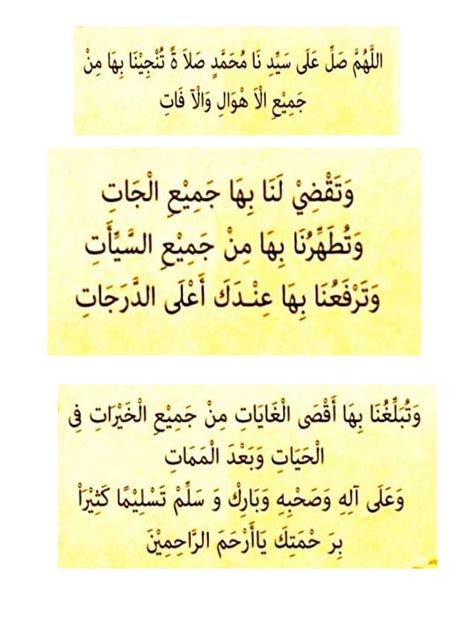 اللَّهُمَّ صَلِّ عَلَى سَيِّدِ نَا مُحَمَّدٍ صَلاَ ةً تُنْجِيْنَا بِهَا مِنْ
جَمِيْعِ الْاَ هْوَالِ وَالْآ فَاتِ
وَتَقْضِيْ لَنَا بِهَا جَمِيْعِ الْجَاتِ
وَتُطَهِّرُنَا بِهَا مِنْ جَمِيْعِ السَّيِّأَتِ
وَتَرْفَعُنَا بِهَا عِنْدَكَ أَعْلَى الدَّرَجَاتِ
وَتُبَلِّغُنَا بِهَا أَقْصَى الْغَايَاتِ مِنْ جَمِيْعِ الْخَيْرَاتِ فِى
الْحَيَاتِ وَبَعْدَ الْمَمَاتِ
وَعَلَى آلِهِ وَصَحْبِهِ وَبَارِكْ وَ سَلِّمْ تَسْلِيْمًا كَثِيْرَاْ
بِرَ حْمَتِكَ يَاأَرْحَمَ الرَّاحِمِيْنَ